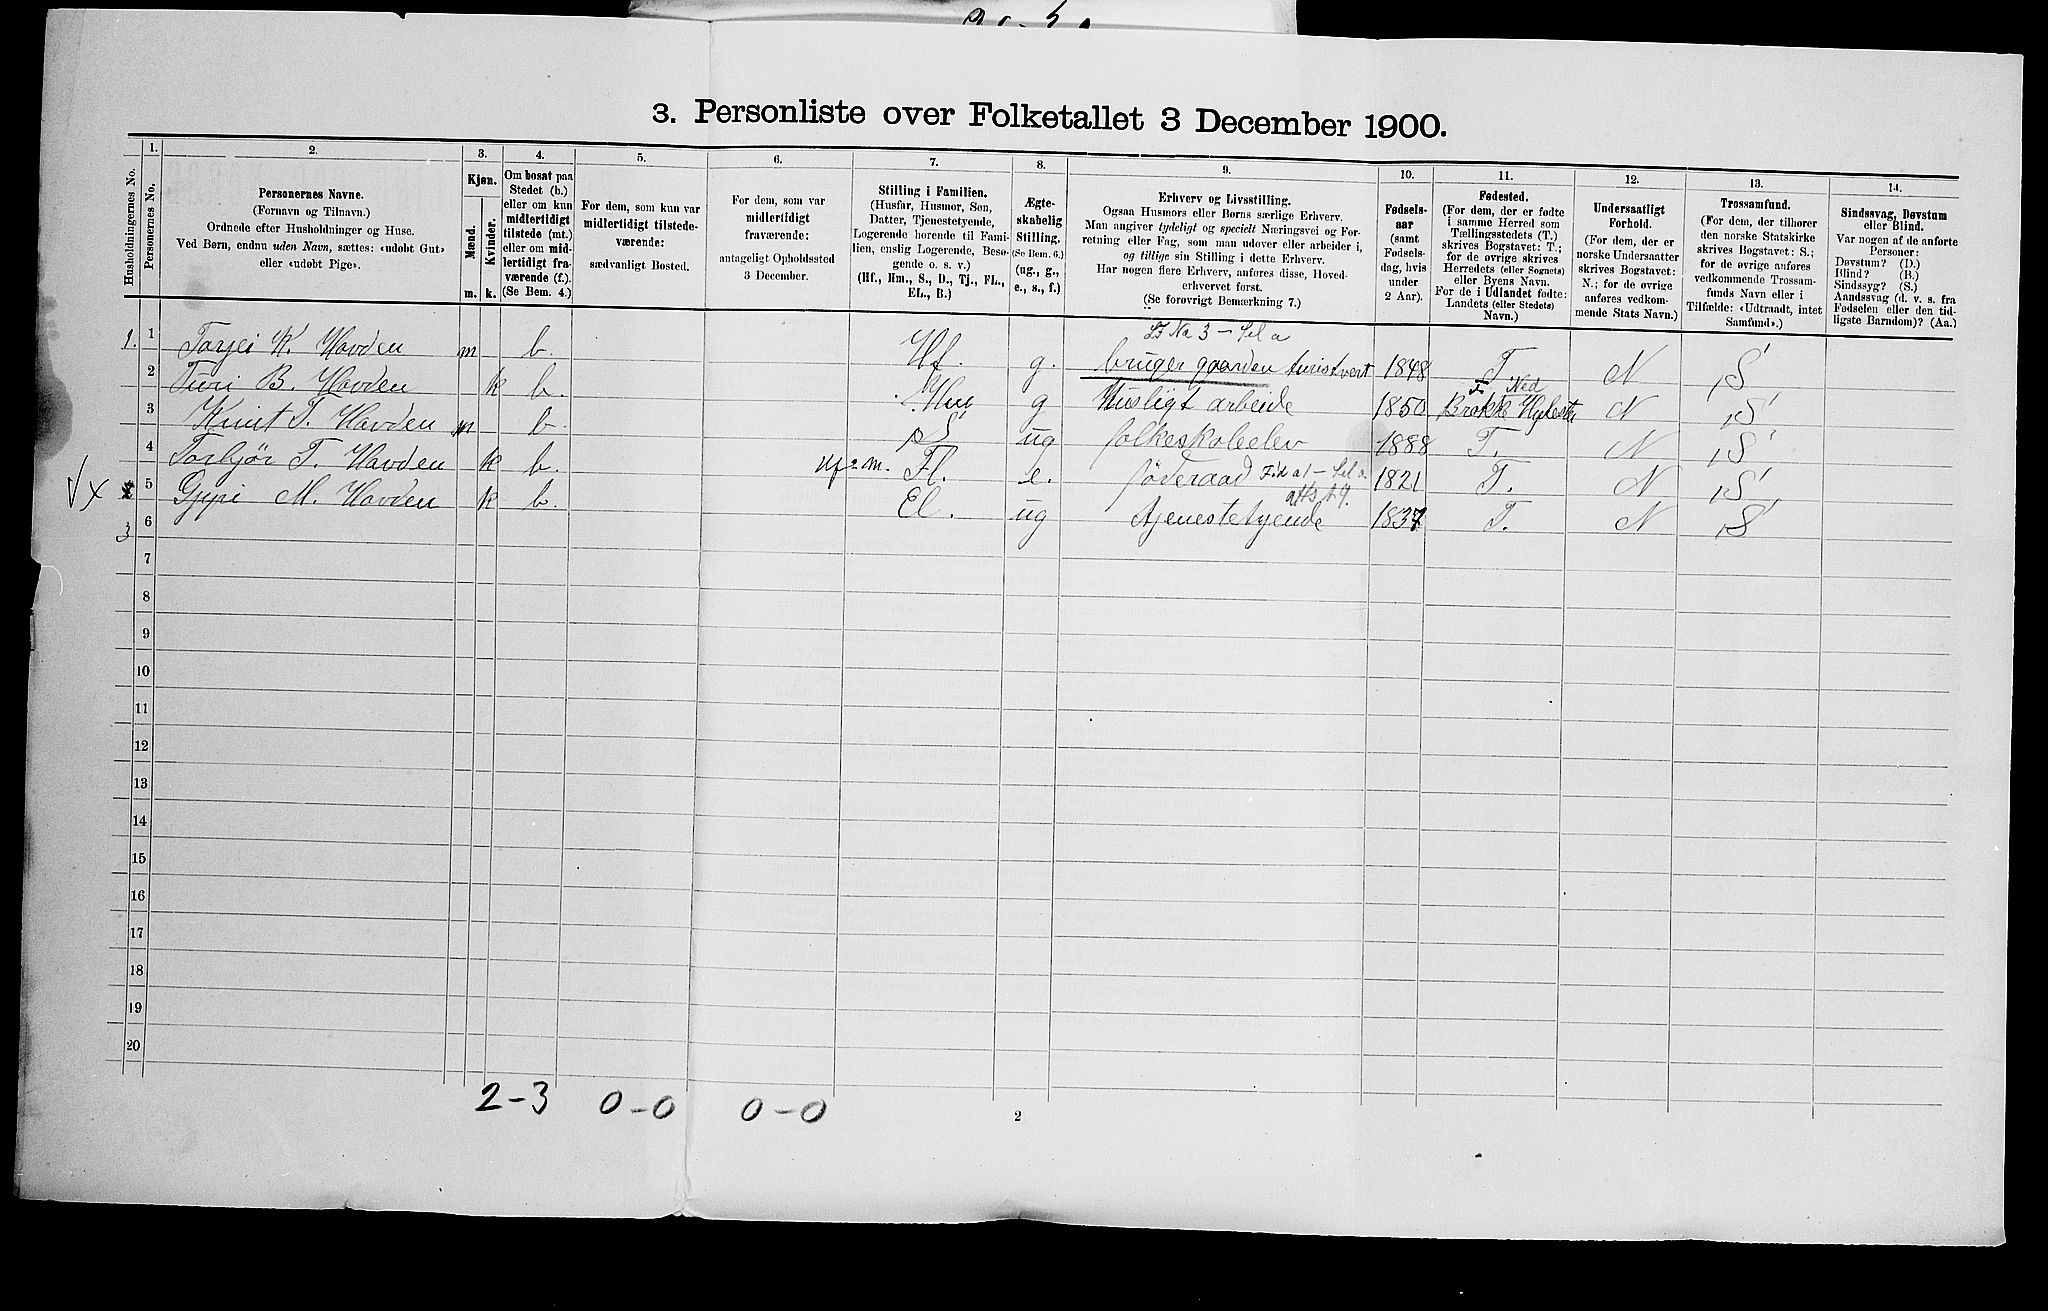 3. Personliste over Folketallet 3 December 1900.
Husholdningernes No.
1. Personernes No.
2. Personernes Navne.
(Fornavn og Tilnavn.)
Ordnede efter Husholdninger og Huse.
Ved Børn, endnu uden Navn, sættes: «udøbt Gut»
eller «udøbt Pige».
3. Kjøn.
Mænd. m.
Kvinder. k.
4. Om bosat paa
Stedet (b.)
eller om kun
midlertidigt
tilstede (mt.)
eller om mid-
lertidigt fra-
værende (f.).
(Se Bem. 4.)
5. For dem, som kun var
midlertidigt tilstede-
værende:
sædvanligt Bosted.
6. For dem, som var
midlertidigt
fraværende:
antageligt Opholdssted
3 December.
7. Stilling i Familien.
(Husfar, Husmor, Søn,
Datter, Tjenestetyende,
Logerende hørende til Fami-
lien, enslig Logerende, Besø-
gende o. s. v.)
(Hf., Hm., S., D., Tj., FL.,
EL., B.)
8. Ægte-
skabelig
Stilling.
(Se Bem. 6.)
(ug., g.,
e., s., f.)
9. Erhverv og Livsstilling.
Ogsaa Husmors eller Børns særlige Erhverv.
Man angiver tydeligt og specielt Næringsvei og For-
retning eller Fag, som man udøver eller arbeider i,
og tillige sin Stilling i dette Erhverv.
Har nogen flere Erhverv, anføres disse, Hoved-
erhvervet først.
(Se forøvrigt Bemærkning 7.)
10. Fødsels-
aar
(samt
Fødsels-
dag, hvis
under
2 Aar).
11. Fødested.
(For dem, der er fødte
i samme Herred som
Tællingsstedets (T.)
skrives Bogstavet: T.;
for de øvrige skrives
Herredets (eller Sognets)
eller Byens Navn.
For de i Udlandet fødte:
Landets (eller Stedets)
Navn.)
12. Undersaatligt
Forhold.
(For dem, der er
norske Undersaatter
skrives Bogstavet:
N.; for de øvrige
anføres vedkom-
mende Stats Navn.)
13. Trossamfund.
(For dem, der tilhører
den norske Statskirke
skrives Bogstavet: S.;
for de øvrige anføres
vedkommende Trossam-
funds Navn eller i
Tilfælde: «Udtraadt, intet
Samfund».)
14. Sindssvag, Døvstum
eller Blind.
Var nogen af de anførte
Personer:
Døvstum? (D.)
Blind? (B.)
Sindssyg? (S.)
Aandssvag (d. v. s. fra
Fødselen eller den tid-
ligste Barndom)? (Aa.)
No 3 –
1. 1 Torjei K. Hovden m b. Hf. g. bruger gaarden turistvert 1848 T. N S
Ned
2 Turi B. Hovden k b. Hu g Husligt arbeide 1850 Brokke Hylestr N S
3 Knut T. Hovden m b. S ug folkeskoleelev 1888 T. N S
4 Torbjør T. Hovden k b. Fl. e. føderaad 1821 T. N S
Vx 5 Gypi M. Hovden k b. El. ug tjenestetyende 1837 T. N S
3 6
7
8
9
10
11
12
13
14
15
16
17
18
19
20
2-3 0-0 0-0
2